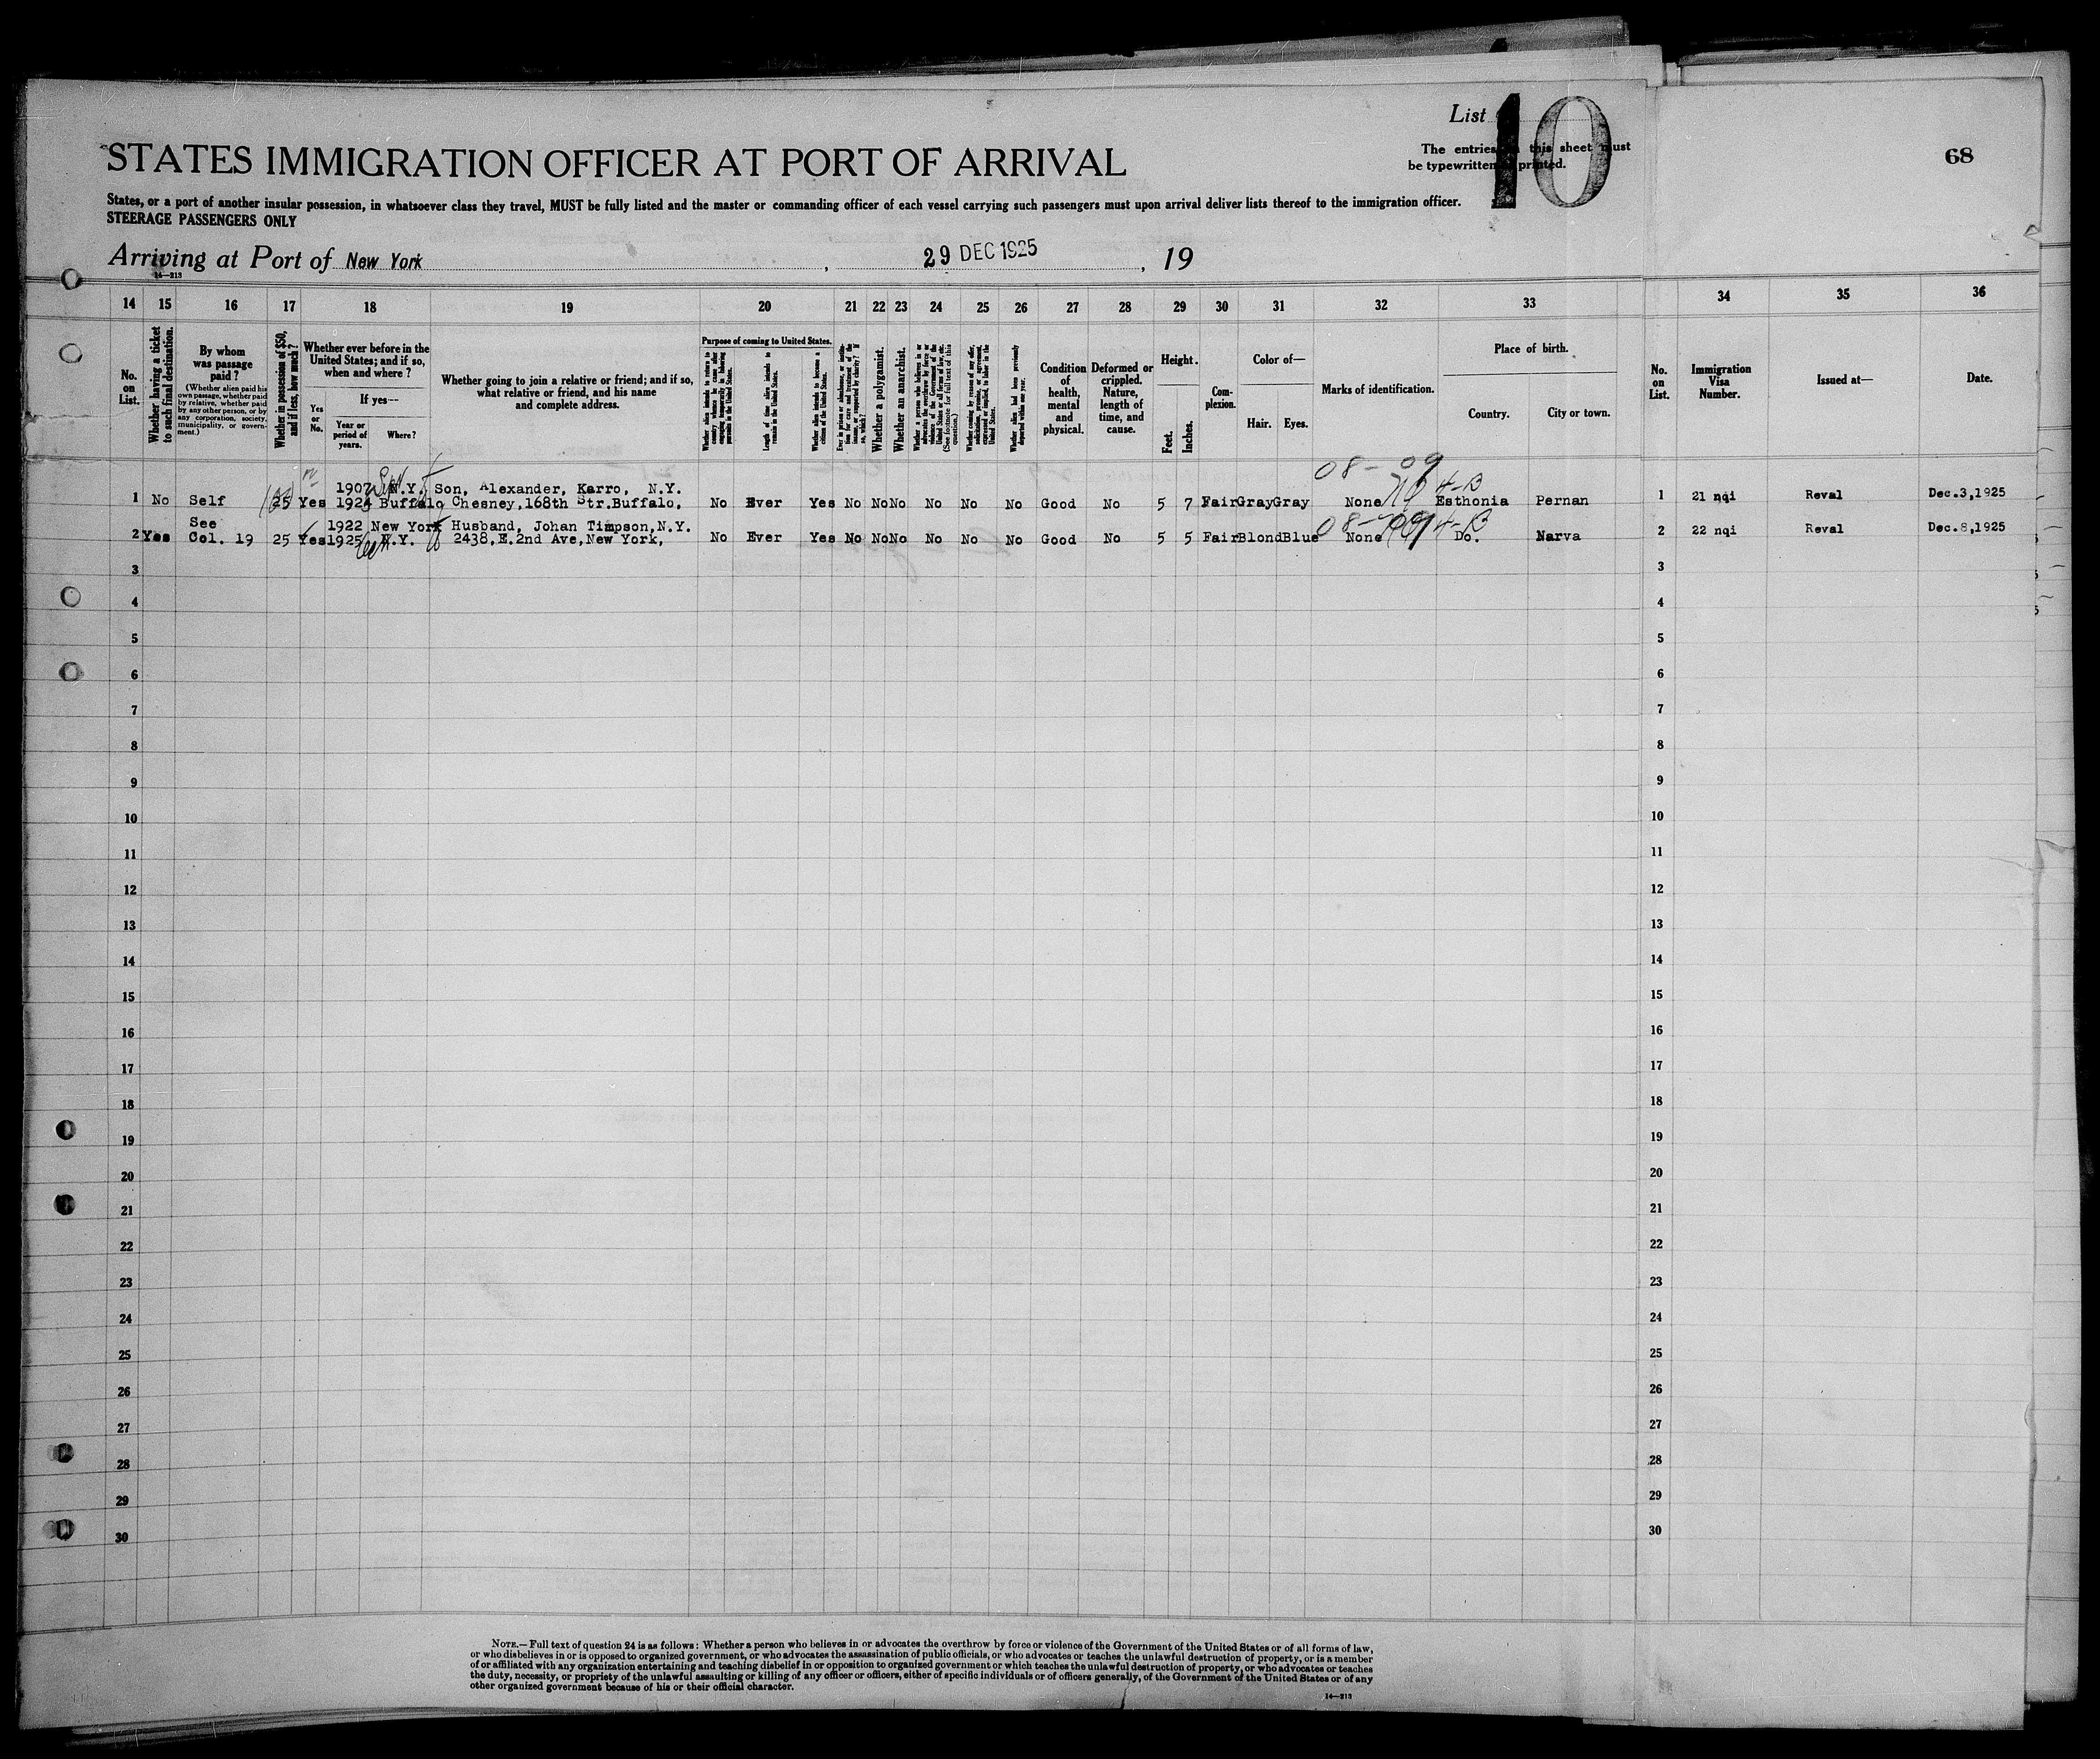 List 10
The entries this sheet must
be typewritten printed.
68
STATES IMMIGRATION OFFICER AT PORT OF ARRIVAL
States, or a port of another insular possession, in whatsoever class they travel, MUST be fully listed and the master or commanding officer of each vessel carrying such passengers must upon arrival deliver lists thereof to the immigration officer.
STEERAGE PASSENGERS ONLY
Arriving at Port of New York, 29 DEC 1925, 19
14—213
14 15 16 17 18 19 20 21 22 23 24 25 26 27 28 29 30 31 32 33 34 35 36
No. on List.
Whether having a ticket to such final destination.
By whom was passage paid?
(Whether alien paid his own passage, whether paid by relative, whether paid by any other person, or by any corporation, society, municipality, or government.)
Whether in possession of $50, and if less, how much?
Whether ever before in the United States; and if so, when and where?
Yes or No.
If yes—
Year or period of years.
Where?
Whether going to join a relative or friend; and if so, what relative or friend, and his name and complete address.
Purpose of coming to United States.
Whether alien intends to return to country whence he came after engaging temporarily in laboring pursuits in the United States.
Length of time alien intends to remain in the United States.
Whether alien intends to become a citizen of the United States.
Ever in prison or almshouse, or institution for care and treatment of the insane, or supported by charity? If so, which?
Whether a polygamist.
Whether an anarchist.
Whether a person who believes in or advocates the overthrow by force or violence of the Government of the United States or all forms of law, etc. (See footnote for full text of this question.)
Whether coming by reason of any offer, solicitation, promise, or agreement, expressed or implied, to labor in the United States.
Whether alien had been previously deported within one year.
Condition of health, mental and physical.
Deformed or crippled. Nature, length of time, and cause.
Height.
Feet. Inches.
Complexion.
Color of—
Hair. Eyes.
Marks of identification.
Place of birth.
Country. City or town.
No. on List.
Immigration Visa Number.
Issued at—
Date.
08-09 4-B
1907 N.Y. Son, Alexander, Karro, N.Y.
1 No Self 25 Yes 1924 Buffalo Chesney,168th Str.Buffalo, No Ever Yes No No No No No No Good No 5 7 Fair Gray Gray None Esthonia Pernan 1 21 nqi Reval Dec.3,1925
See 1922 New York Husband, Johan Timpson,N.Y. 08-09 4-B
2 Yes Col. 19 25 Yes 1925 N.Y. 2438,E.2nd Ave,New York, No Ever Yes No No No No No No Good No 5 5 Fair Blond Blue None Do. Narva 2 22 nqi Reval Dec.8,1925
3 3
4 4
5 5
6 6
7 7
8 8
9 9
10 10
11 11
12 12
13 13
14 14
15 15
16 16
17 17
18 18
19 19
20 20
21 21
22 22
23 23
24 24
25 25
26 26
27 27
28 28
29 29
30 30
NOTE.—Full text of question 24 is as follows: Whether a person who believes in or advocates the overthrow by force or violence of the Government of the United States or of all forms of law,
or who disbelieves in or is opposed to organized government, or who advocates the assassination of public officials, or who advocates or teaches the unlawful destruction of property, or is a member
of or affiliated with any organization entertaining and teaching disbelief in or opposition to organized government or which teaches the unlawful destruction of property, or who advocates or teaches
the duty, necessity, or propriety of the unlawful assaulting or killing of any officer or officers, either of specific individuals or of officers generally, of the Government of the United States or of any
other organized government because of his or their official character.
14—213